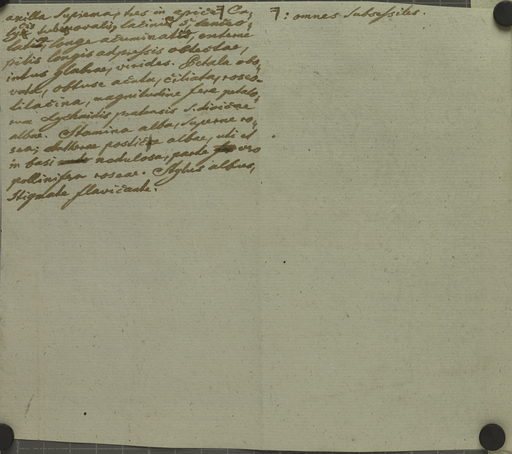 axilla suprema, tres in apice 7 Ca,
lycis subovatis, laciniis lanceo,
latis, longe acuminatis, externe
pilis longis adpressis obtectae,
intus glabrae, virides. Petala obo,
vata, obtuse acuta, ciliata, roseo
lilacina, magnitudine fere petalo,
rum Lychnidis pratensis s. dioicae
albae. Stamina alba, superne ro,
sea; antherae posticae albae, uti et
in basi nodulosa, parte vero
pollinifera roseae. Stylus albus,
Stigmate flavicante.
7: omnes subsessiles.